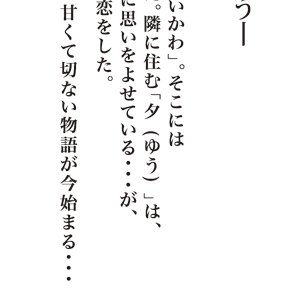 うー
いかわ」。そこには
。隣に住む「夕(ゆう)」は、
に思いをよせている・・・が、
恋をした。
甘くて切ない物語が今始まる・・・